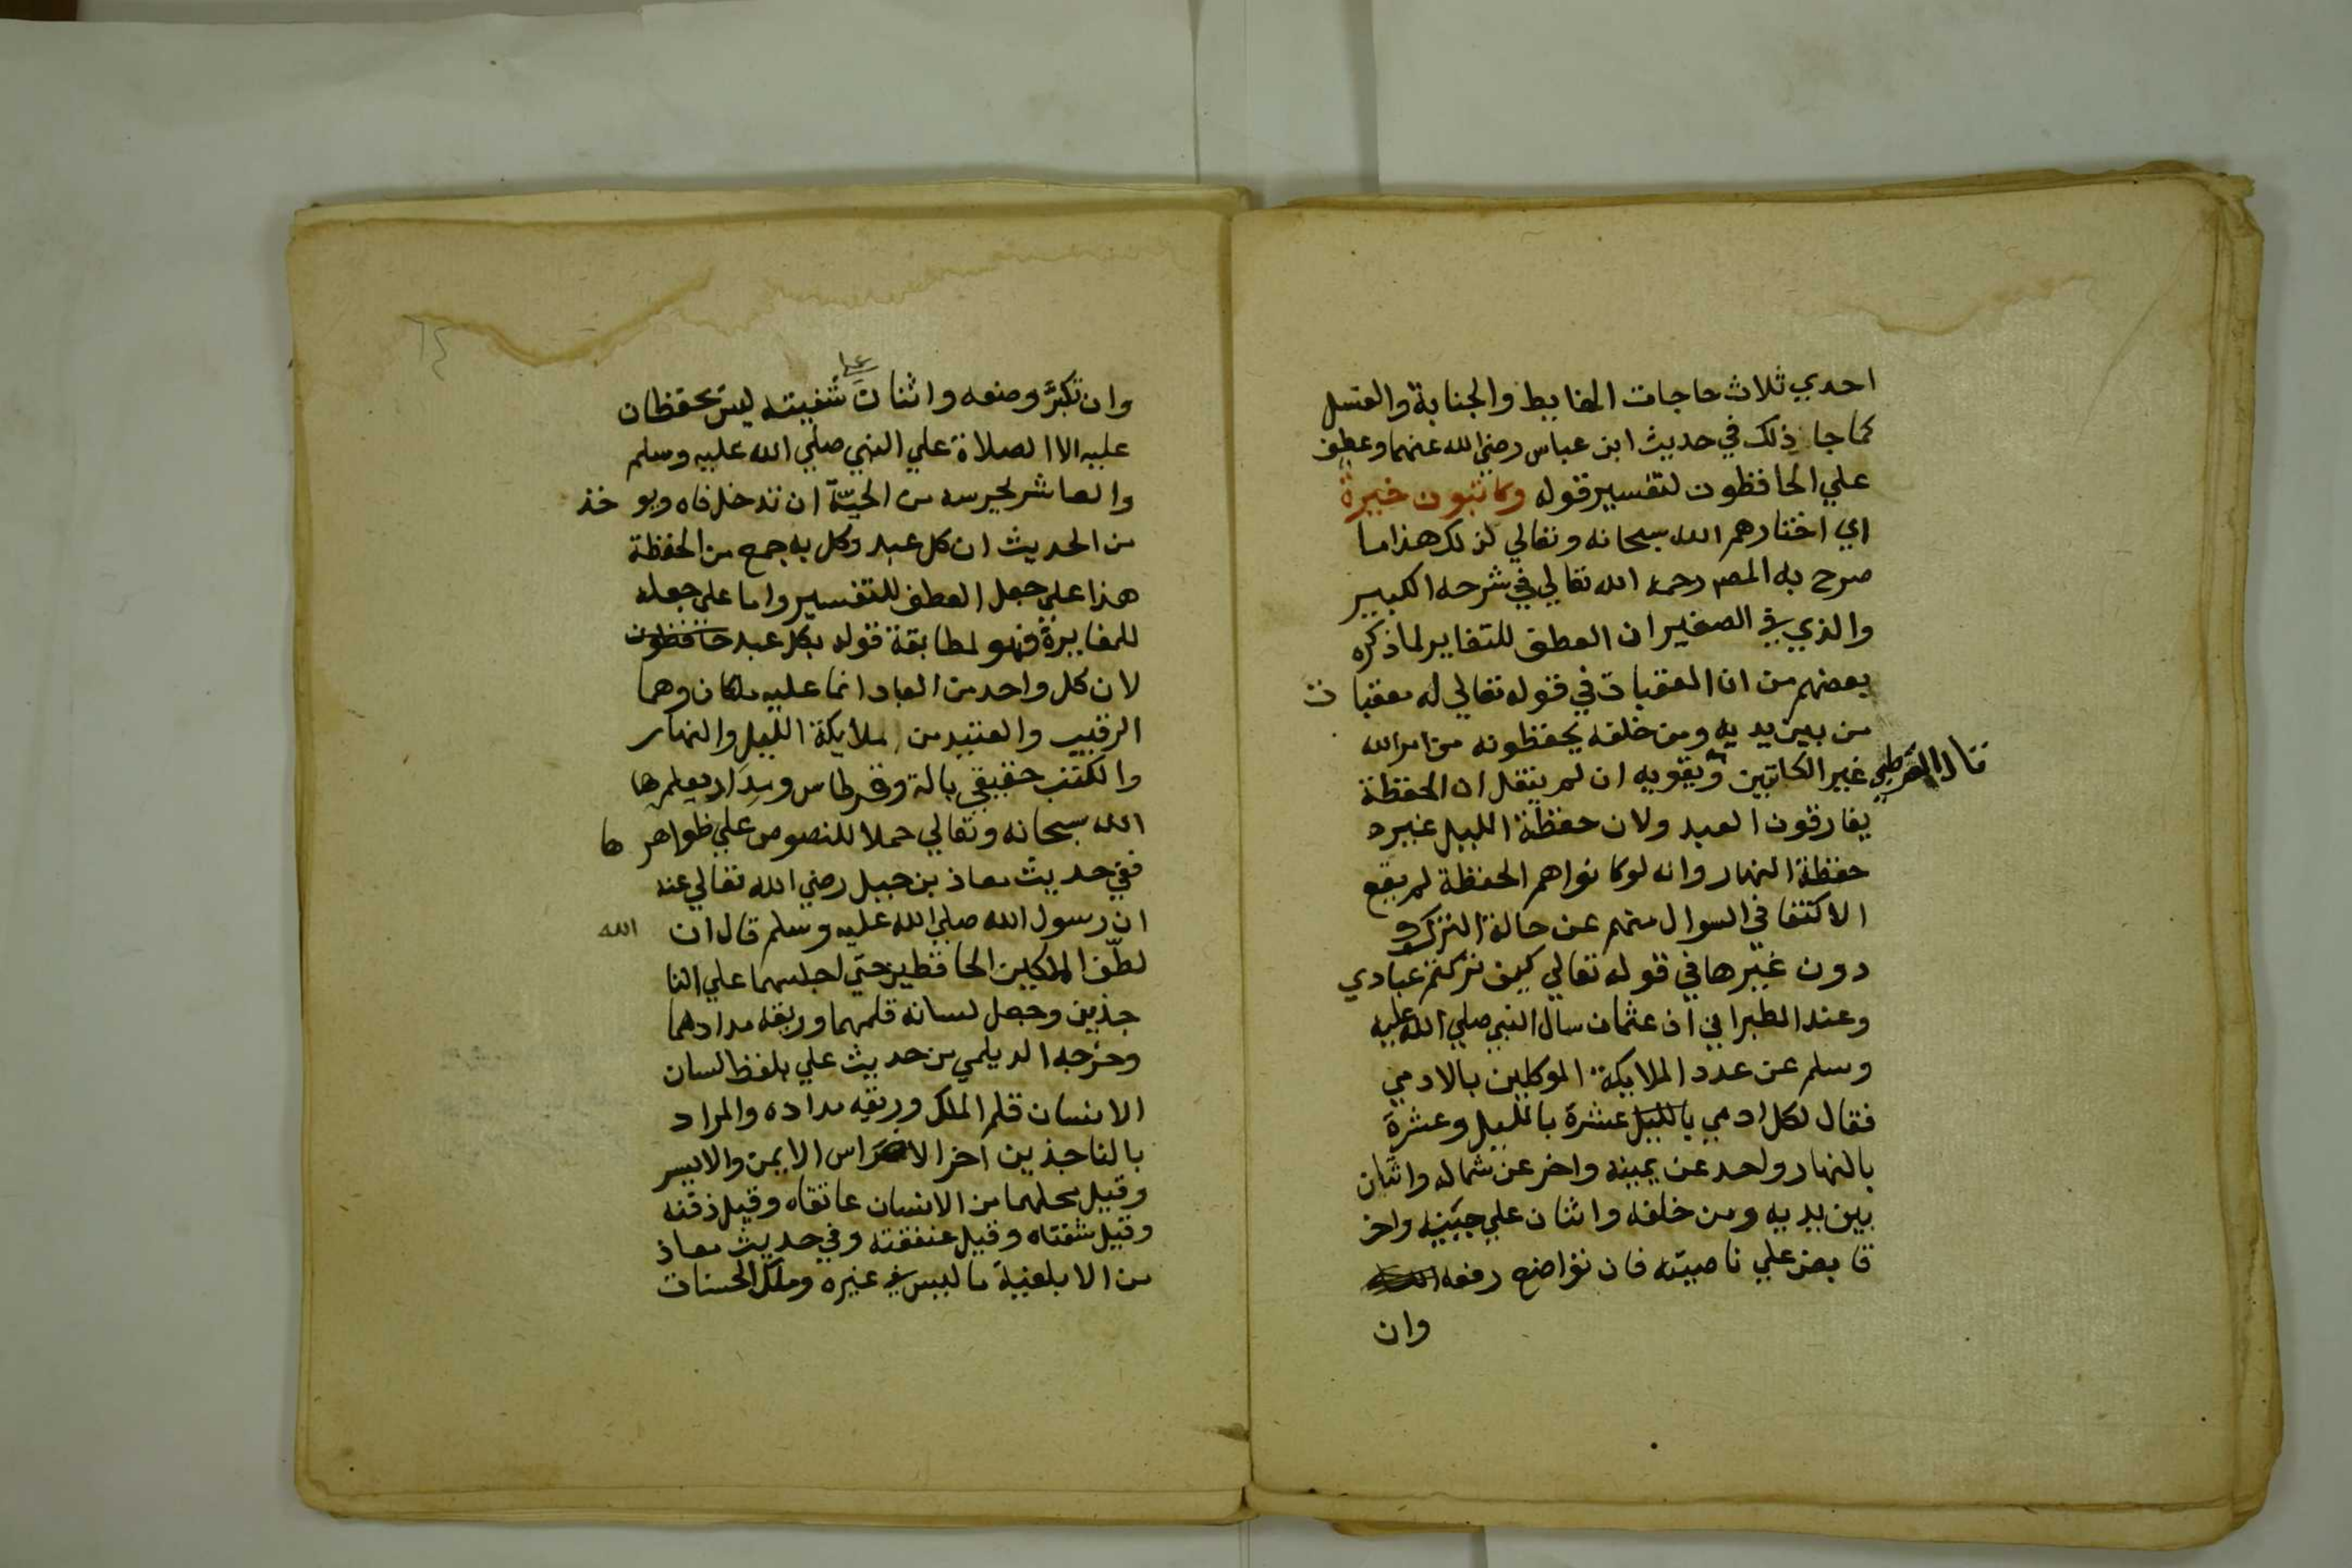 احدي ثلاث حاجات الغايط والجنابة والغسل
كما جا ذلك في حديث ابن عباس رضي الله عنهما وعطف
علي الحافظون لتفسير قوله وكاتبون خيرة
اي اختارهم الله سبحانه وتعالي لذلك هذا ما
صرح به المصر رحمه الله تعالي في شرحه الكبير
والذي في الصغير ان العطف للتغاير لما ذكره
بعضهم من ان المعقبات في قوله تعالي له معقبات
من بين يديه ومن خلفه يحفظونه من امر الله
غير الكاتبين ويقويه ان لم ينقل ان الحفظة
قال القرطبي
يفارقون العبد ولان حفظة الليل غير
حفظة النهار وانه لو كانوا هم الحفظة لم يقع
الاكتفا في السوال منهم عن حالة الترك
دون غيرها في قوله تعالي كيف تركتم عبادي
وعند الطبراني ان عثمان سال النبي صلي الله عليه
وسلم عن عدد الملايكة الموكلين بالادمي
فقال لكل ادمي بالليل عشرة بالليل وعشرة
بالنهار واحد عن يمينه واخر عن شماله واثنان
بين يديه ومن خلفه واثنان علي جبينه واخر
قابض علي ناصيته فان تواضع رفعه
وان
٦٤
وان تكبر وضعه واثنان علي شفيته ليس يحفظان
عليه الا الصلاة علي النبي صلي الله عليه وسلم
والعاشر يحرسه من الحية ان تدخل فاه ويوخذ
من الحديث ان كل عبد وكل به جمع من الحفظة
هذا علي جعل العطف للتفسير واما علي جعله
للمغايرة فهو لمطابقة قوله بكل عبد حافظون
لان كل واحد من العباد انما عليه ملكان وهما
الرقيب والعتيد من ملايكة الليل والنهار
والكتب حقيقي بالة وقرطاس ومداد يعلمها
الله سبحانه وتعالي حملا للنصوص علي ظواهرها
ففي حديث معاذ بن جبل رضي الله تعالي عنه
ان رسول الله صلي الله عليه وسلم قال ان الله
لطف الملكين الحافظين حتي اجلسهما علي النا
جذين وجعل لسانه قلمهما وريقه مدادهما
وخرجه الديلمي من حديث علي بلفظ لسان
الانسان قلم الملك وريقه مداده والمراد
بالناجذين اخر الاضراس الايمن والايسر
وقيل محلهما من الانسان عاتقاه وقيل ذقنه
وقيل شفتاه وقيل عنفقته وفي حديث معاذ
من الابلغية ما ليس في غيره وملك الحسنات